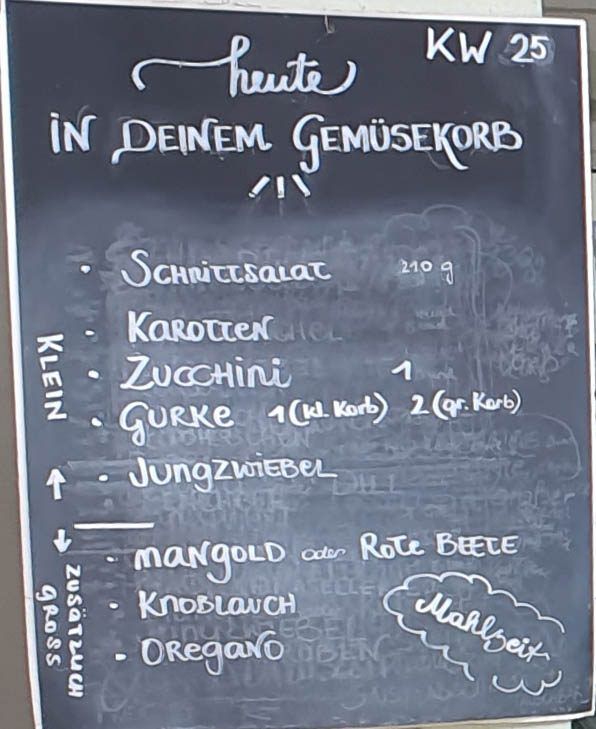 KW 25
heute
IN DEINEM GEMÜSEKORB
• SCHNITTSALAT 210 g
• KAROTTEN
• ZUCCHINI 1
• GURKE 1 (kl. Korb) 2 (gr. Korb)
• JUNGZWIEBEL
KLEIN ↑
↓ ZUSÄTZLICH GROSS
• MANGOLD oder ROTE BEETE
• KNOBLAUCH
• OREGANO
Mahlzeit